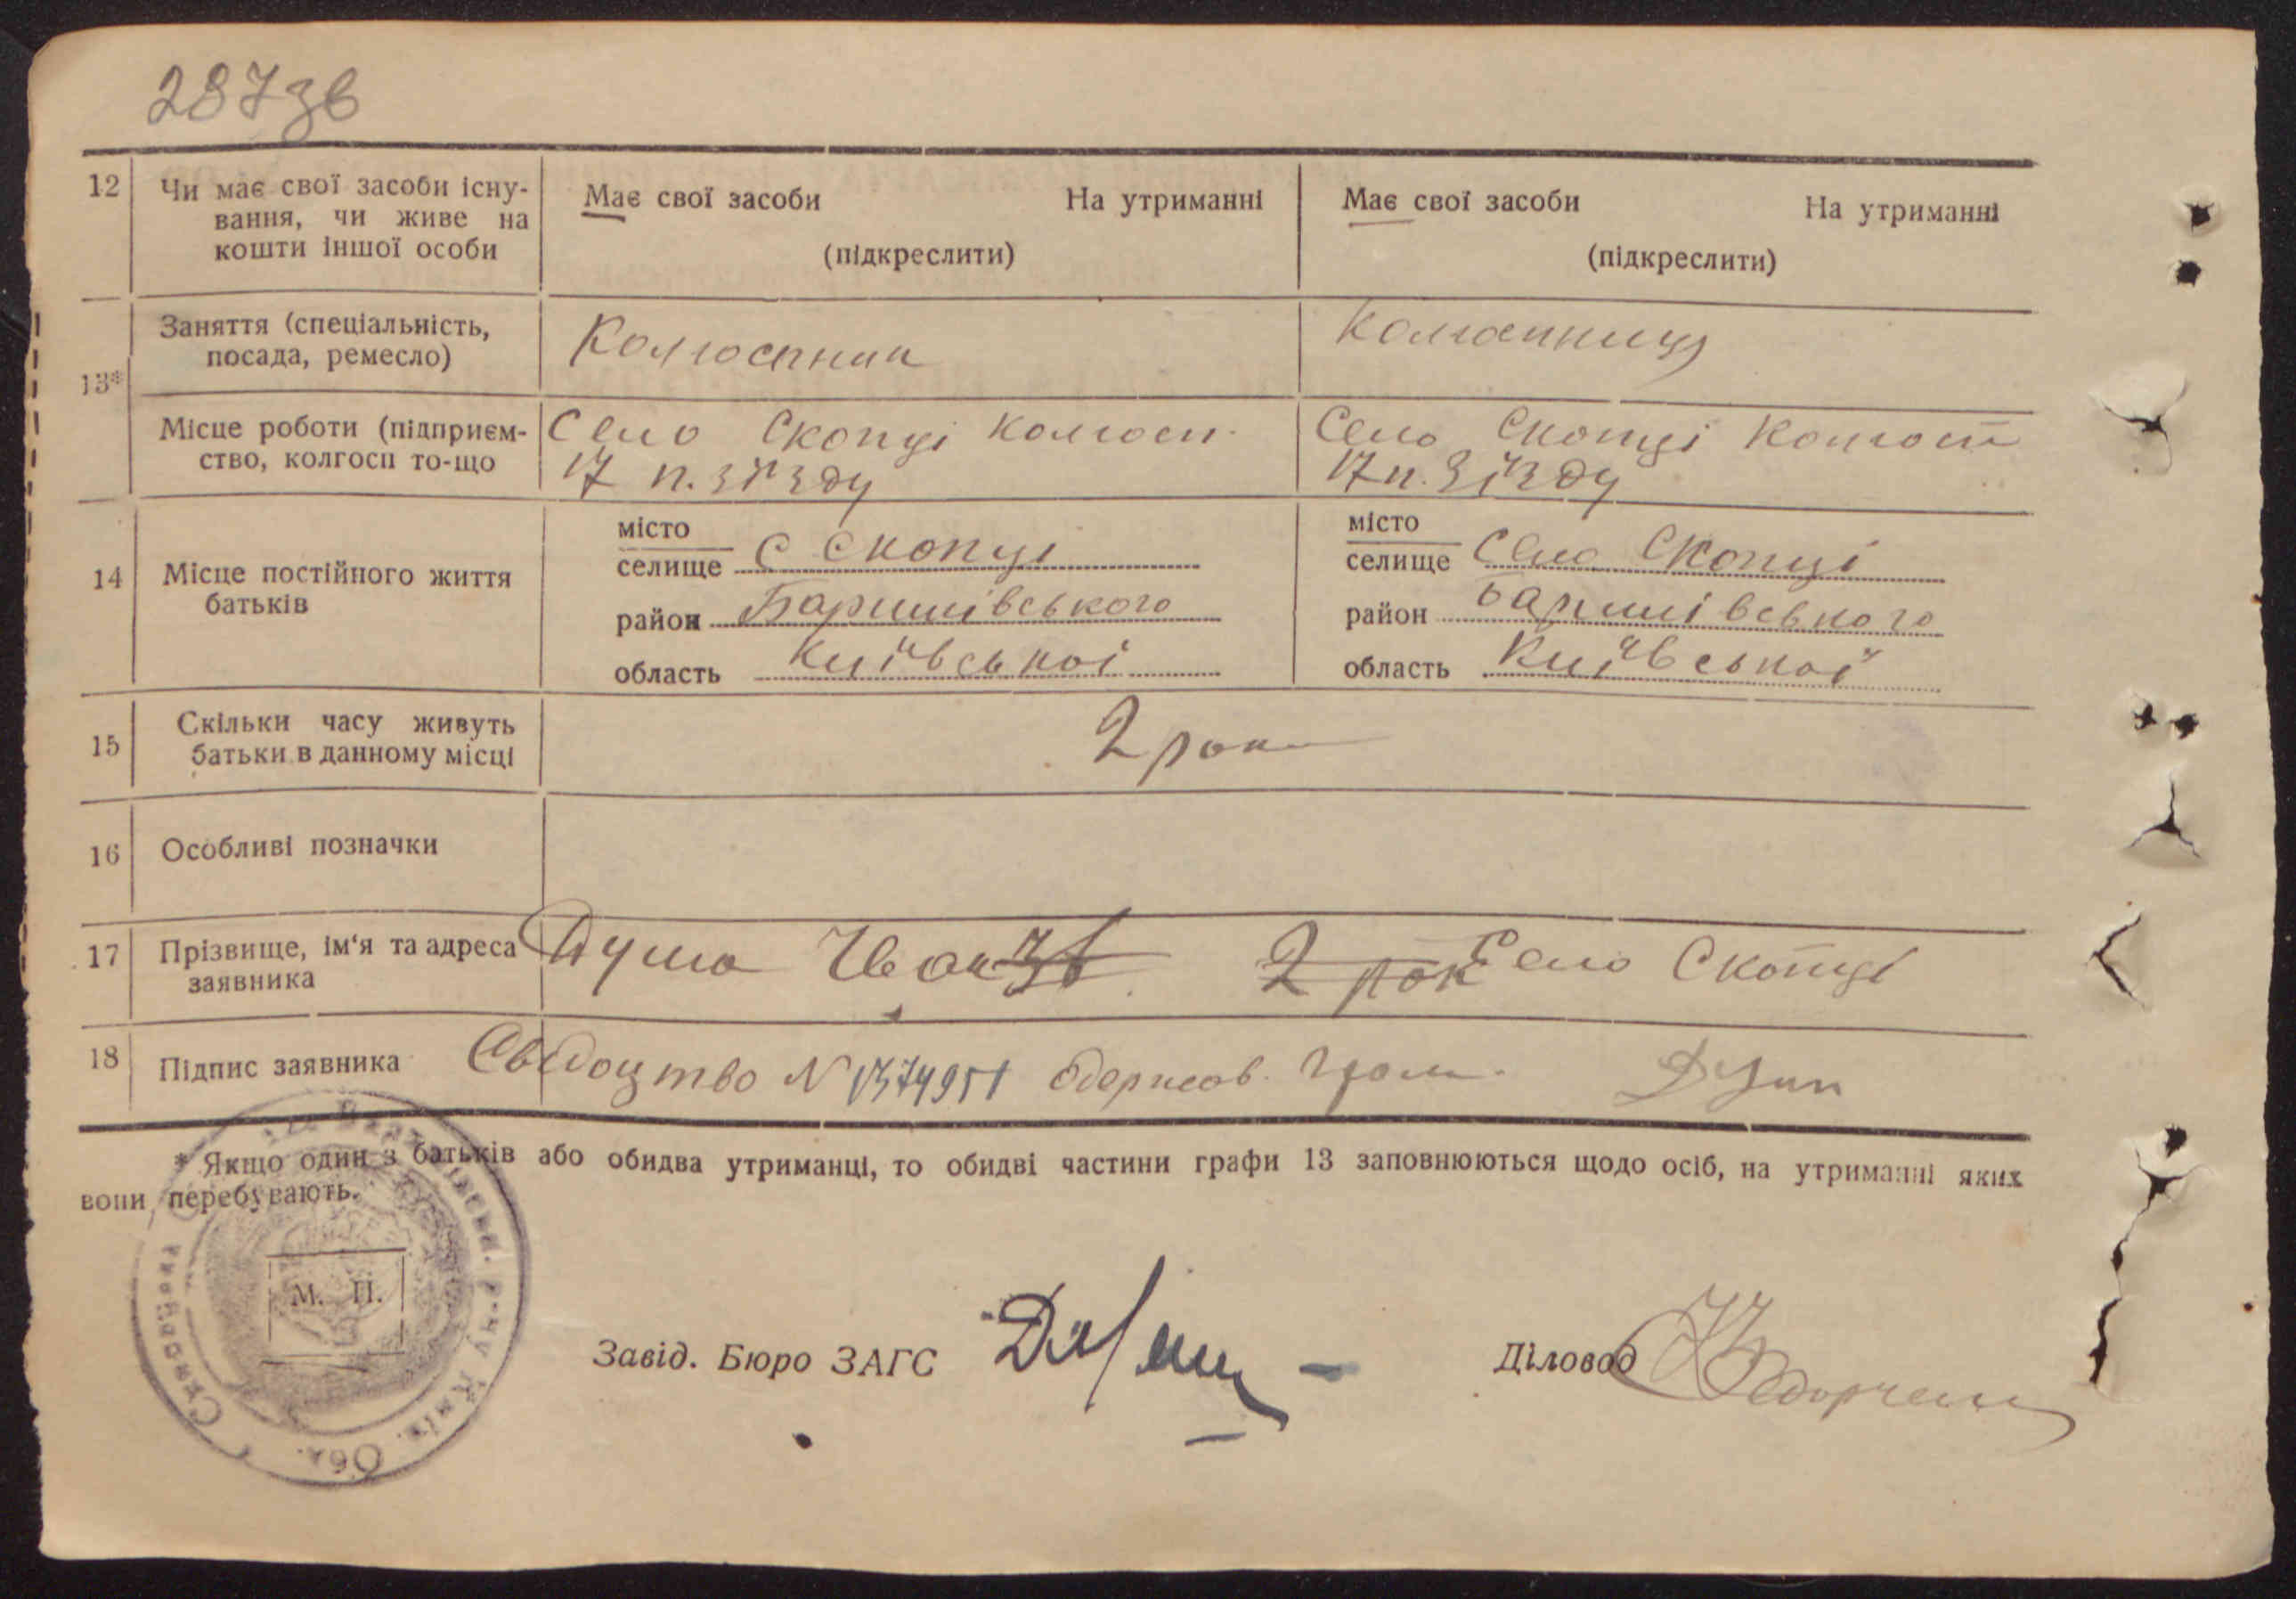 287зв
12 Чи має свої засоби існу-
вання, чи живе на
кошти іншої особи
Має свої засоби На утриманні
(підкреслити)
Має свої засоби На утриманні
(підкреслити)
13*
Заняття (спеціальність,
посада, ремесло)
Колгоспник
Колгоспниця
Місце роботи (підприєм-
ство, колгосп то-що
Село Скопці Колгосп
17 п. зїзду
Село Скопці Колгосп
17 п. зїзду
14 Місце постійного життя
батьків
місто
селище с Скопці
район Баришівського
область Київської
місто
селище Село Скопці
район Баришівського
область Київської
15 Скільки часу живуть
батьки в данному місці
2 роки
16 Особливі позначки
17 Прізвище, ім'я та адреса
заявника
Дума Іван 2 рок Село Скопці
18 Підпис заявника
Свідоцтво N 1374951 одержав
* Якщо один з батьків або обидва утриманці, то обидві частини графи 13 заповнюються щодо осіб, на утриманні яких
вони перебувають.
М. П.
Завід. Бюро ЗАГС
Діловод